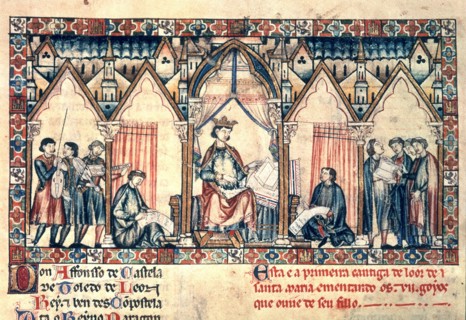 Don Affonsso de Castela
de Toledo de Leon
Rey e ben des Cõpostela
ta o Reyno Daragon
Esta e a primeira cantiga de loor de
santa maria ementando os .vii. goyos
que ouve de seu fillo.